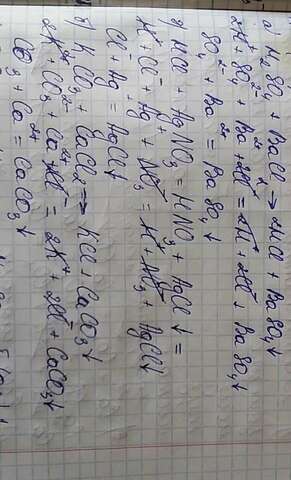 а) H₂SO₄ + BaCl₂ → 2HCl + BaSO₄↓
2H⁺ + SO₄²⁻ + Ba²⁺ + 2Cl⁻ = 2H⁺ + 2Cl⁻ + BaSO₄↓
SO₄²⁻ + Ba²⁺ = BaSO₄↓
д) HCl + AgNO₃ = HNO₃ + AgCl↓ =
H⁺ + Cl⁻ + Ag⁺ + NO₃⁻ = H⁺ + NO₃⁻ + AgCl↓
Cl⁻ + Ag⁺ = AgCl↓
б) K₂CO₃ + CaCl₂ → KCl + CaCO₃↓
2K⁺ + CO₃²⁻ + Ca²⁺ + 2Cl⁻ = 2K⁺ + 2Cl⁻ + CaCO₃↓
CO₃²⁻ + Ca²⁺ = CaCO₃↓